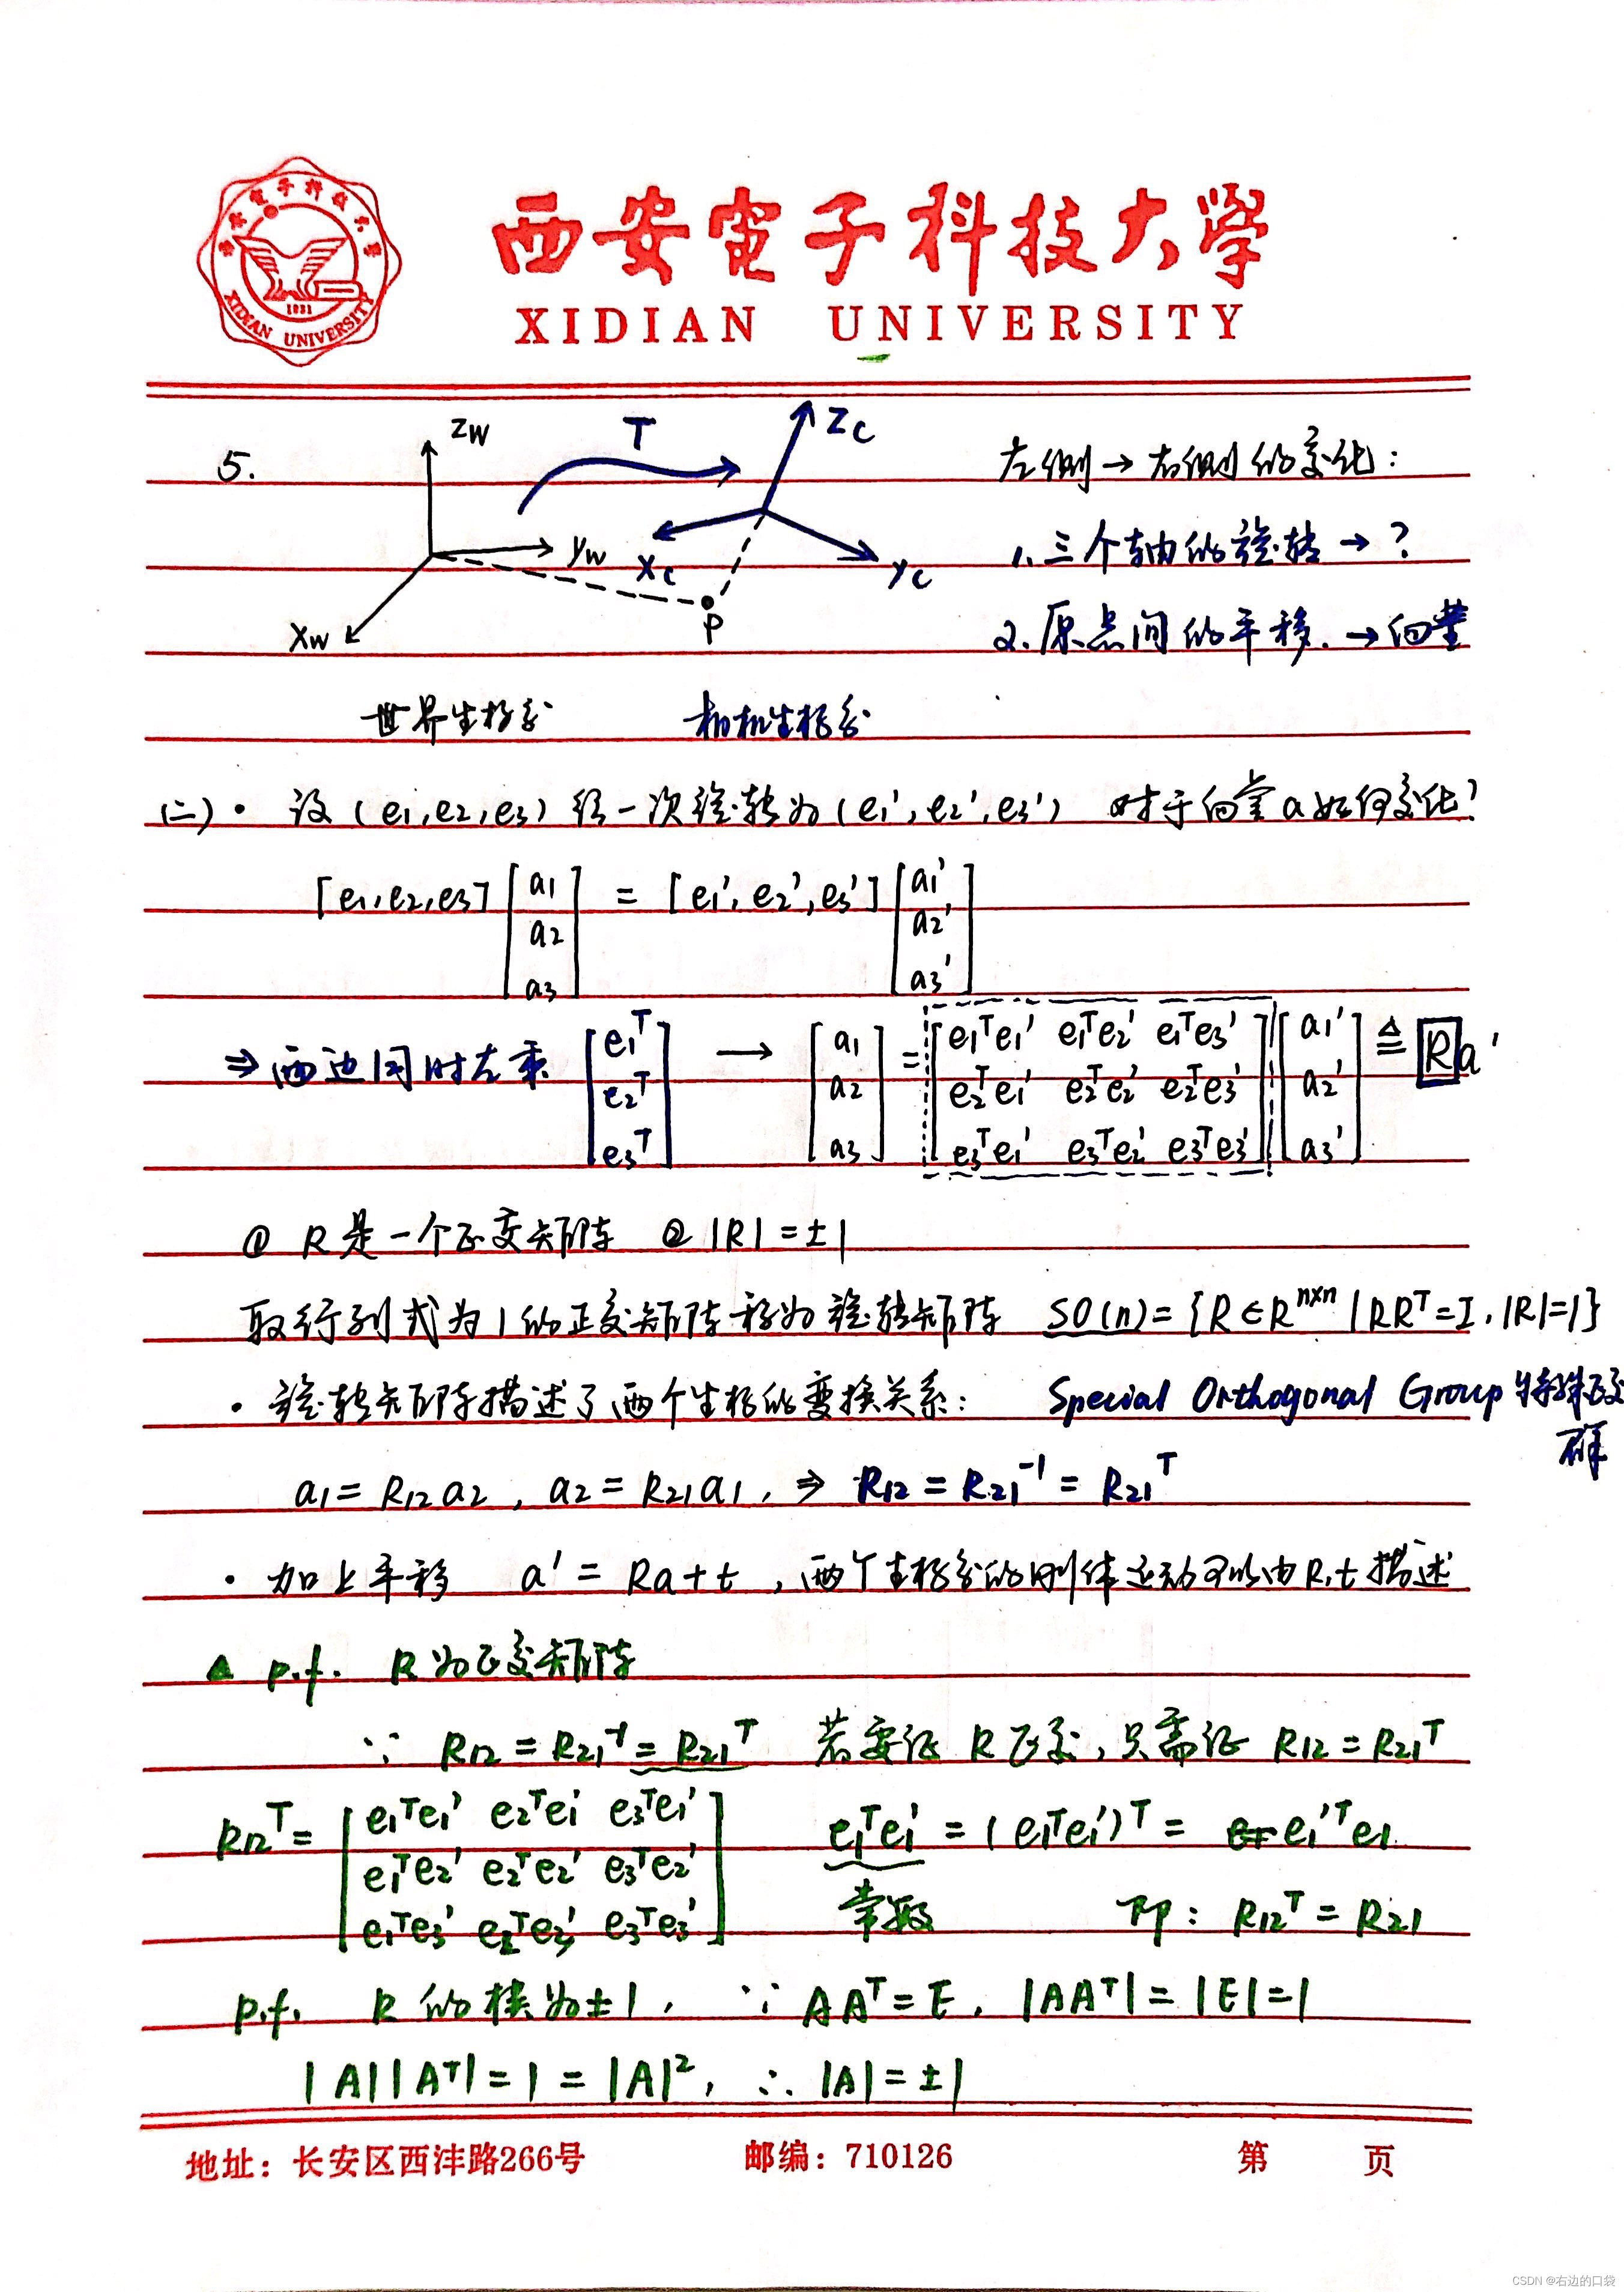 西安電子科技大學
XIDIAN UNIVERSITY
西安電子科技大學
1931
XIDIAN UNIVERSITY
5.
Zw
yw
Xw
T
Zc
Xc
yc
P
左侧→右侧的变化:
1.三个轴的旋转→?
2.原点间的平移.→向量
世界坐标系 相机坐标系
(二)· 设(e1,e2,e3)经一次旋转为(e1',e2',e3') 对于向量a如何变化?
[e1,e2,e3] [a1 a2 a3] = [e1',e2',e3'] [a1' a2' a3']
⇒两边同时左乘 [e1ᵀ e2ᵀ e3ᵀ] → [a1 a2 a3] = [e1ᵀe1' e1ᵀe2' e1ᵀe3' e2ᵀe1' e2ᵀe2' e2ᵀe3' e3ᵀe1' e3ᵀe2' e3ᵀe3'] [a1' a2' a3'] ≜ Ra'
① R是一个正交矩阵 ② |R|=±1
取行列式为1的正交矩阵称为旋转矩阵 SO(n)={R∈Rⁿˣⁿ|RRᵀ=I,|R|=1}
· 旋转矩阵描述了两个坐标的变换关系: Special Orthogonal Group 特殊正交
群
a1=R12a2, a2=R21a1, ⇒ R12=R21⁻¹=R21ᵀ
· 加上平移 a'=Ra+t,两个坐标系的刚体运动可以由R,t描述
△ p.f. R为正交矩阵
∵ R12=R21⁻¹=R21ᵀ 若要证R正交,只需证 R12=R21ᵀ
R12ᵀ= [e1ᵀe1' e2ᵀe1' e3ᵀe1' e1ᵀe2' e2ᵀe2' e3ᵀe2' e1ᵀe3' e2ᵀe3' e3ᵀe3'] e1ᵀe1'=(e1ᵀe1')ᵀ= e1'ᵀe1
常数 即: R12ᵀ=R21
p.f. R的模为±1, ∵ AAᵀ=E, |AAᵀ|=|E|=1
|A||Aᵀ|=1=|A|², ∴ |A|=±1
地址: 长安区西沣路266号 邮编: 710126 第 页
CSDN @右边的口袋